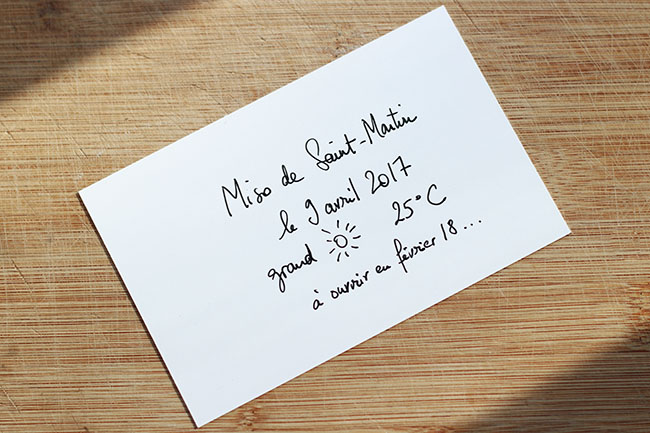 Miso de Saint-Martin
le 9 avril 2017
grand 25°C
à ouvrir en février 18...